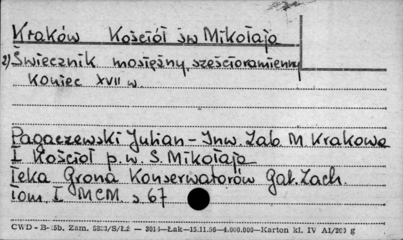 Kraków Kościół św Mikołaja
2) Świecznik mosiężny sześcioramienny
koniec XVII w.
Pagaczewski Julian - Inw. Zab. M. Krakowa
I Kościół p. w. S. Mikołaja
Teka Grona Konserwatorów Gal. Zach.
tom. I MCM. s 67
CWD - B- Zam. 5823/S/Łż — 3015—Łak—15.11.56—4.000.000—Karton kl. IV A1/200 g